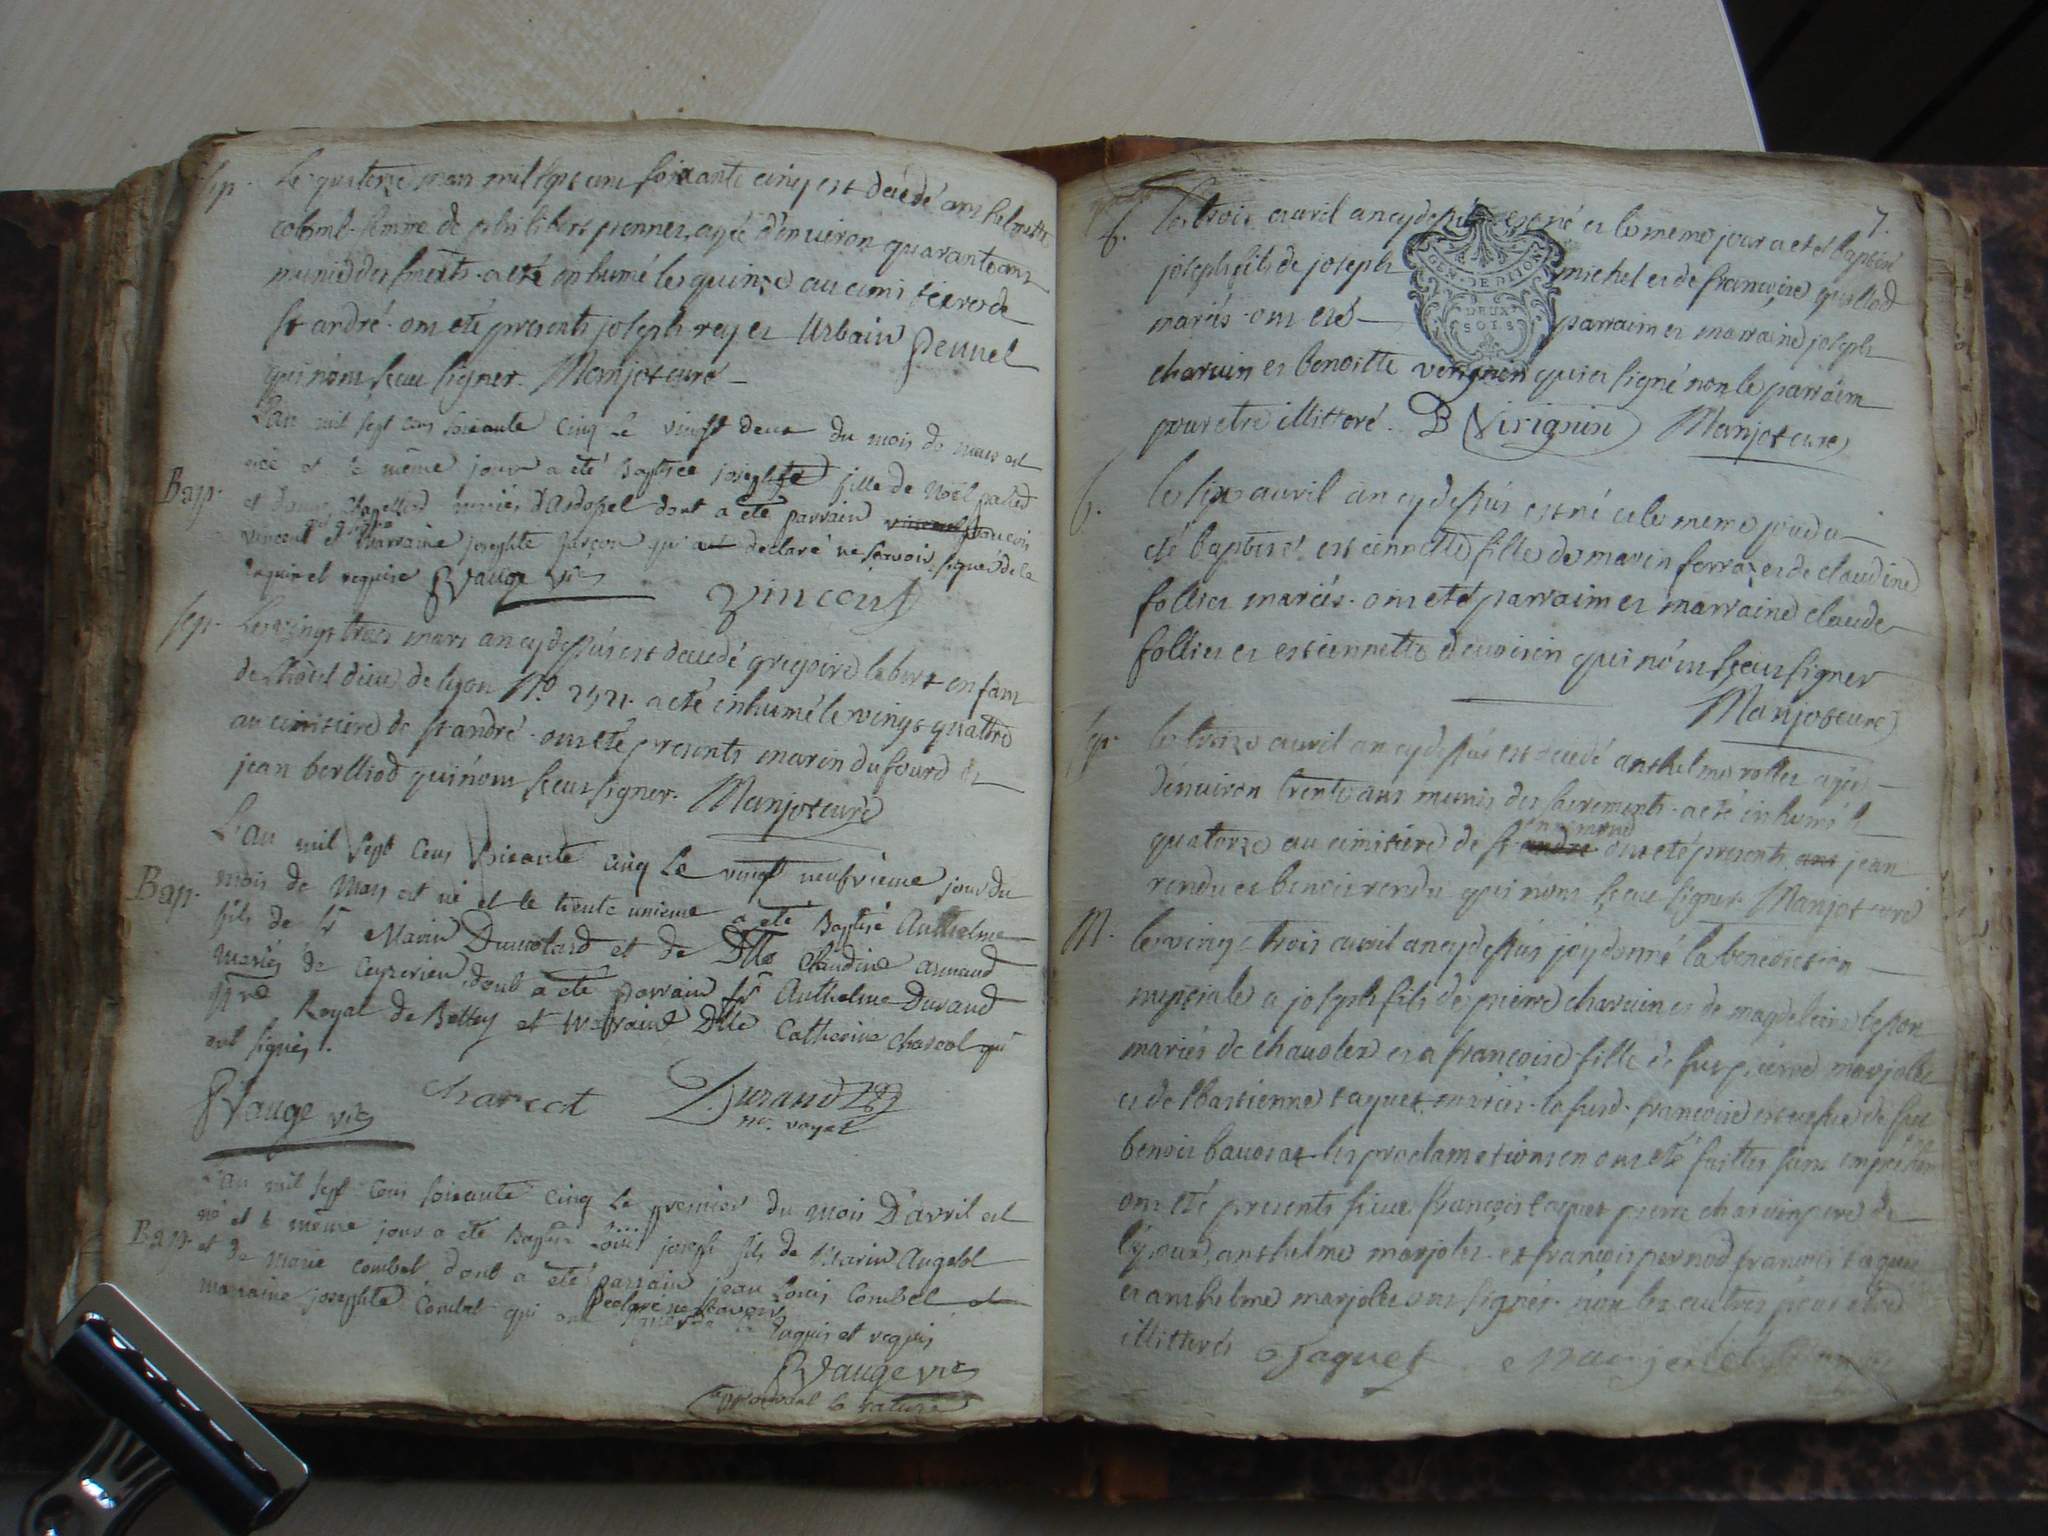 Sep. Le quatorze mars mil sept cent soixante cinq est decedé anthelmette
femme de philibert pennet, agée d'environ quarante ans
munie des sacments. a eté inhumé le quinze au cimistiere de
St andré. ont eté presents joseph rey et Urbain Pennel
qui n'ont sceu signer. Manjot curé
L'an mil sept cens soixante cinq le vingt deux du mois de mars est
née et le même jour a été Baptisée josephte fille de Noël
Bap. et mariés d'Andossel dont a été parrain francois
qui a signé
vincent et marraine josephte garçon qui a declaré ne scavoir signer de ce
enquis et requise PVauge vic vincent
Sep. Le vingt trois mars an cy dessus est decedé gregoire enfan
de l'hotel dieu de lyon No. 2521. a eté inhumé le vingt quattre
au cimistiere de St andré. ont eté presents marin dufourd et
jean berlliod qui n'ont sceu signer. Manjot curé
L'an mil sept cens soixante cinq le vingt neufvieme jour du
Bap. mois de Mars est né et le trente unieme a eté Baptisé Anthelme
fils de Sr Marin Dumolard et de Dlle Claudine armand
mariés de Ceyzerieu, dont a eté parrain Sr Anthelme Durand
Royal de Belley et marraine Dlle Catherine Charcot qui
ont signés.
PVauge vic Charcot Durand
no. royal
L'an mil sept cens soixante cinq le premier du mois D'avril est
né et le même jour a eté Baptisé Louis joseph fils de Marin
Bap. et de Marie Combet, dont a eté parrain jean Louis Combet et
marraine josephte Combet qui ont declaré ne scavoir
signer de ce Enquis et requis
PVauge vic
approuvant la rature
7.
b. Le trois avril an cy dessus est né et le meme jour a eté baptisé
joseph fils de joseph michel et de francoise quillod
mariés. ont eté parraim et marraine joseph
charvin et benoitte verignin qui a signé non le parraim
pour etre illitteré. B Virignin Manjot curé
GEN. DE DIJON
DEUX
SOLS
b. le six avril an cy dessus est né et le meme jour a
eté baptisé estiennette fille de marin ferraz et de claudine
follier mariés. ont eté parraim et marraine claude
follier et estiennette devoisin qui n'ont sceu signer
Manjot curé
Sep. le treize avril an cy dessus est decedé anthelme rollet agé
d'environ trente ans munis des sacrements. a eté inhumé le
quatorze au cimistiere de St andre ont eté presents jean
rendu et benoit rendu qui n'ont sceu signer. Manjot curé
M. le vingt trois avril an cy dessus j'ay donné la benediction
nuptiale a joseph fils de pierre charvin et de magdeleine
mariés de et a françoise fille de fut pierre marjolet
et de sebastienne taquet mariés. la susd. francoise est vefve de fut
benoit les proclamations en ont eté faittes sans
ont eté presents sieur françois taquet pierre charvin pere de
l'epoux, anthelme marjolet. et françois pernod françois taquet
et anthelme marjolet ont signés. non les autres pour etre
illitterés Jaquet Marjollet